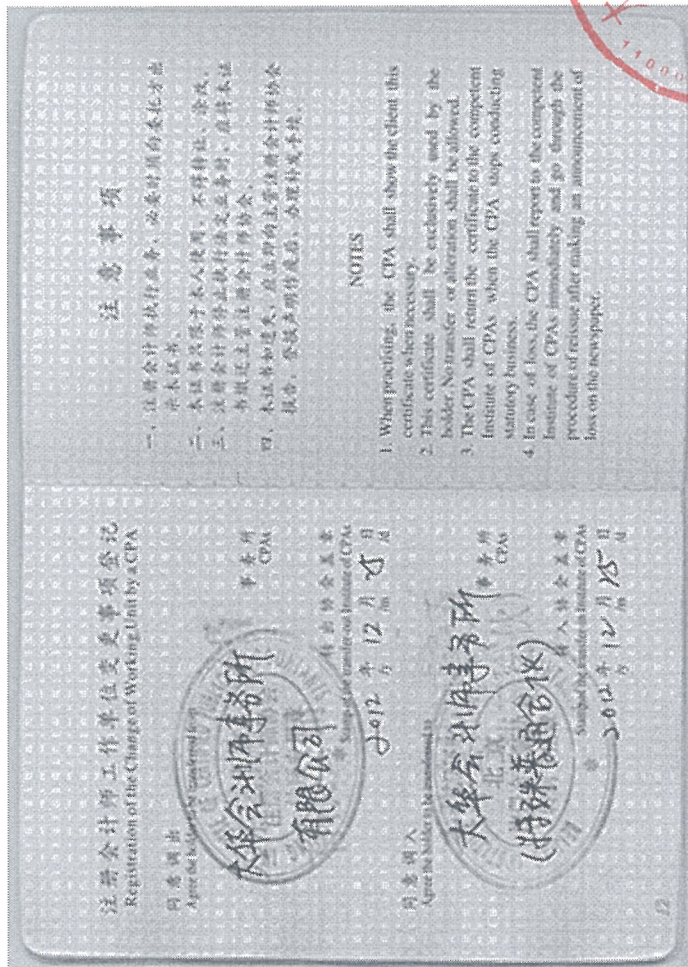 注册会计师工作单位变更事项登记
Registration of the Change of Working Unit by a CPA
同意调出
Agree the holder to be transferred from
大华会计师事务所
有限公司
事务所
CPAs
转出协会盖章
Stamp of the transfer-out Institute of CPAs
2012 年 12 月 25 日
/y /m /d
同意调入
Agree the holder to be transferred to
大华会计师事务所
(特殊普通合伙)
事务所
CPAs
转入协会盖章
Stamp of the transfer-in Institute of CPAs
2012 年 12 月 25 日
/y /m /d
12
注意事项
一、注册会计师执行业务,必要时须向委托方出
示本证书。
二、本证书只限于本人使用,不得转让、涂改。
三、注册会计师停止执行法定业务时,应将本证
书缴还主管注册会计师协会。
四、本证书如遗失,应立即向主管注册会计师协会
报告,登报声明作废后,办理补发手续。
NOTES
1. When practising, the CPA shall show the client this
certificate when necessary.
2. This certificate shall be exclusively used by the
holder. No transfer or alteration shall be allowed.
3. The CPA shall return the certificate to the competent
Institute of CPAs when the CPA stops conducting
statutory business.
4. In case of loss, the CPA shall report to the competent
Institute of CPAs immediately and go through the
procedure of reissue after making an announcement of
loss on the newspaper.